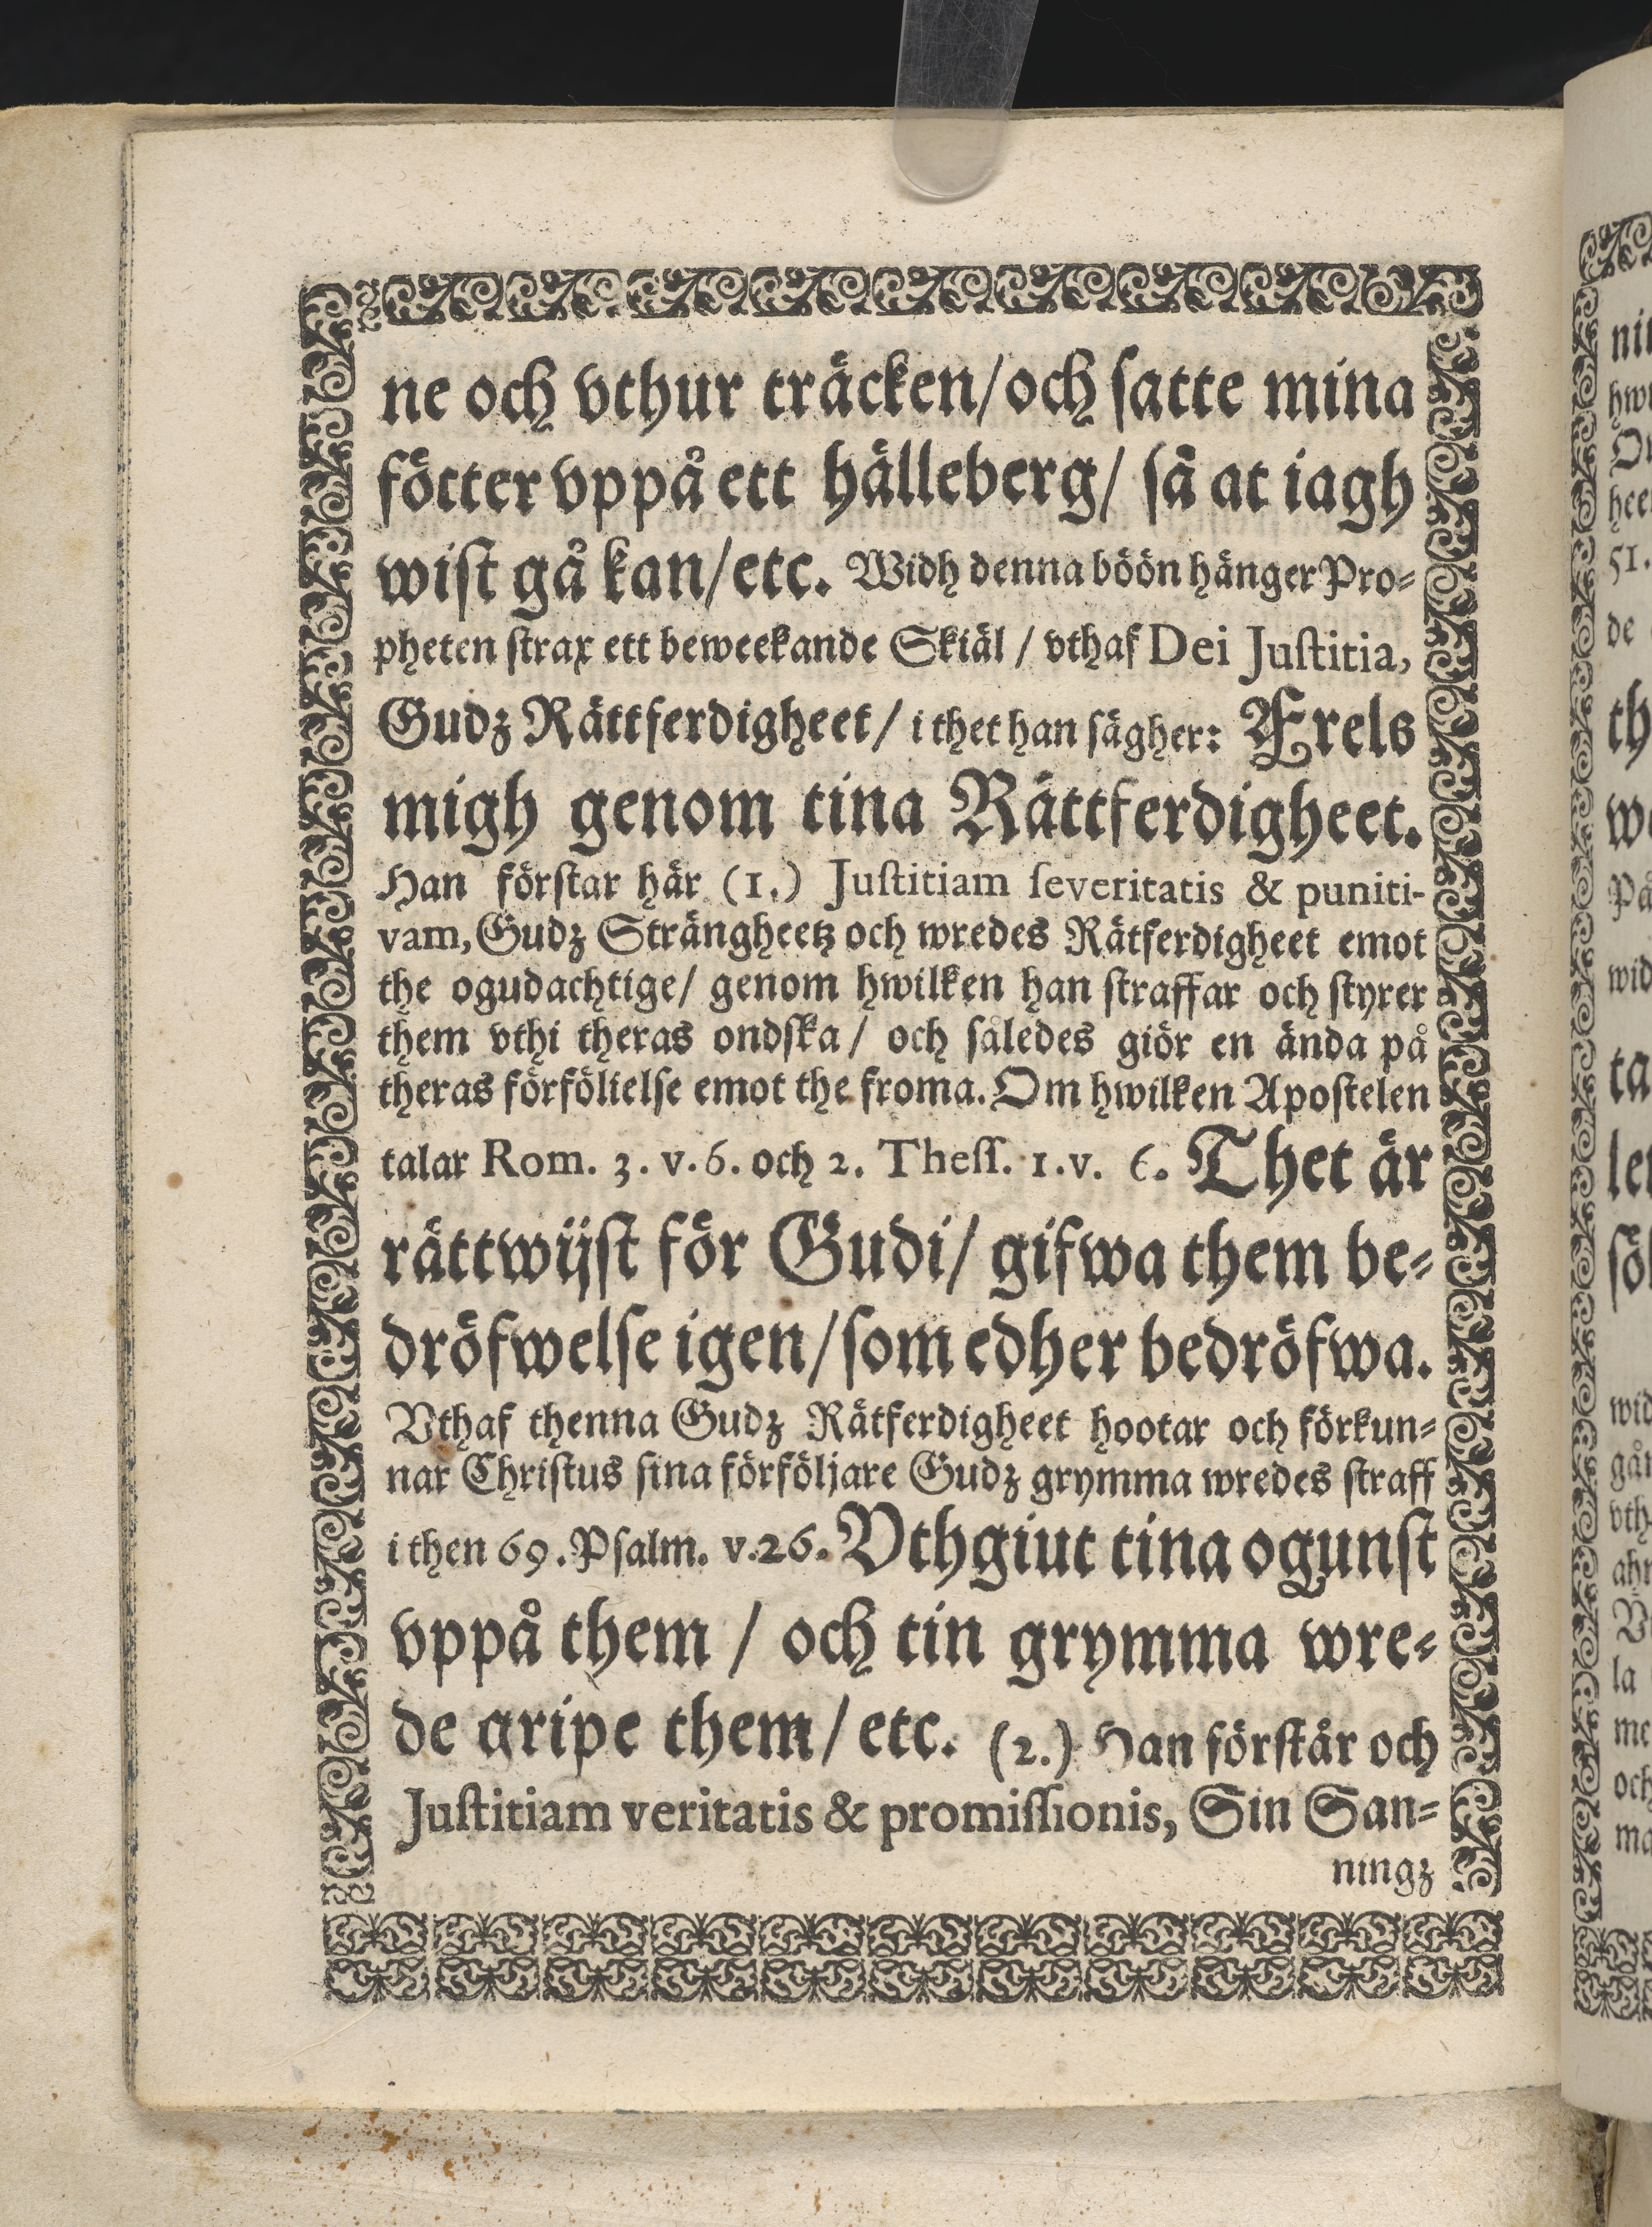 ne och vthur träcken/och satte mina
fötter vppå ett hälleberg/ så at iagh
wist gå kan/etc. Widh denna böön hänger Pro-
pheten strax ett beweekande Skiäl / vthaf Dei Justitia,
Gudz Rättferdigheet/ i thet han sägher: Frels
migh genom tina Rättferdigheet.
Han förstar här (1.) Justitiam severitatis & puniti-
vam, Gudz Strängheetz och wredes Rätferdigheet emot
the ogudachtige/ genom hwilken han straffar och styrer
them vthi theras ondska/ och således giör en ända på
theras förfölielse emot the froma. Om hwilken Apostelen
talar Rom. 3. v. 6. och 2. Thess. 1. v. 6. Thet är
rättwijst för Gudi/ gifwa them be-
dröfwelse igen/som edher bedröfwa.
Vthaf thenna Gudz Rätferdigheet hootar och förkun-
nar Christus sina förföljare Gudz grymma wredes straff
i then 69. Psalm. v. 26. Vthgiut tina ogunst
vppå them / och tin grymma wre-
de gripe them/ etc. (2.) Han förstår och
Justitiam veritatis & promissionis, Sin San-
ningz